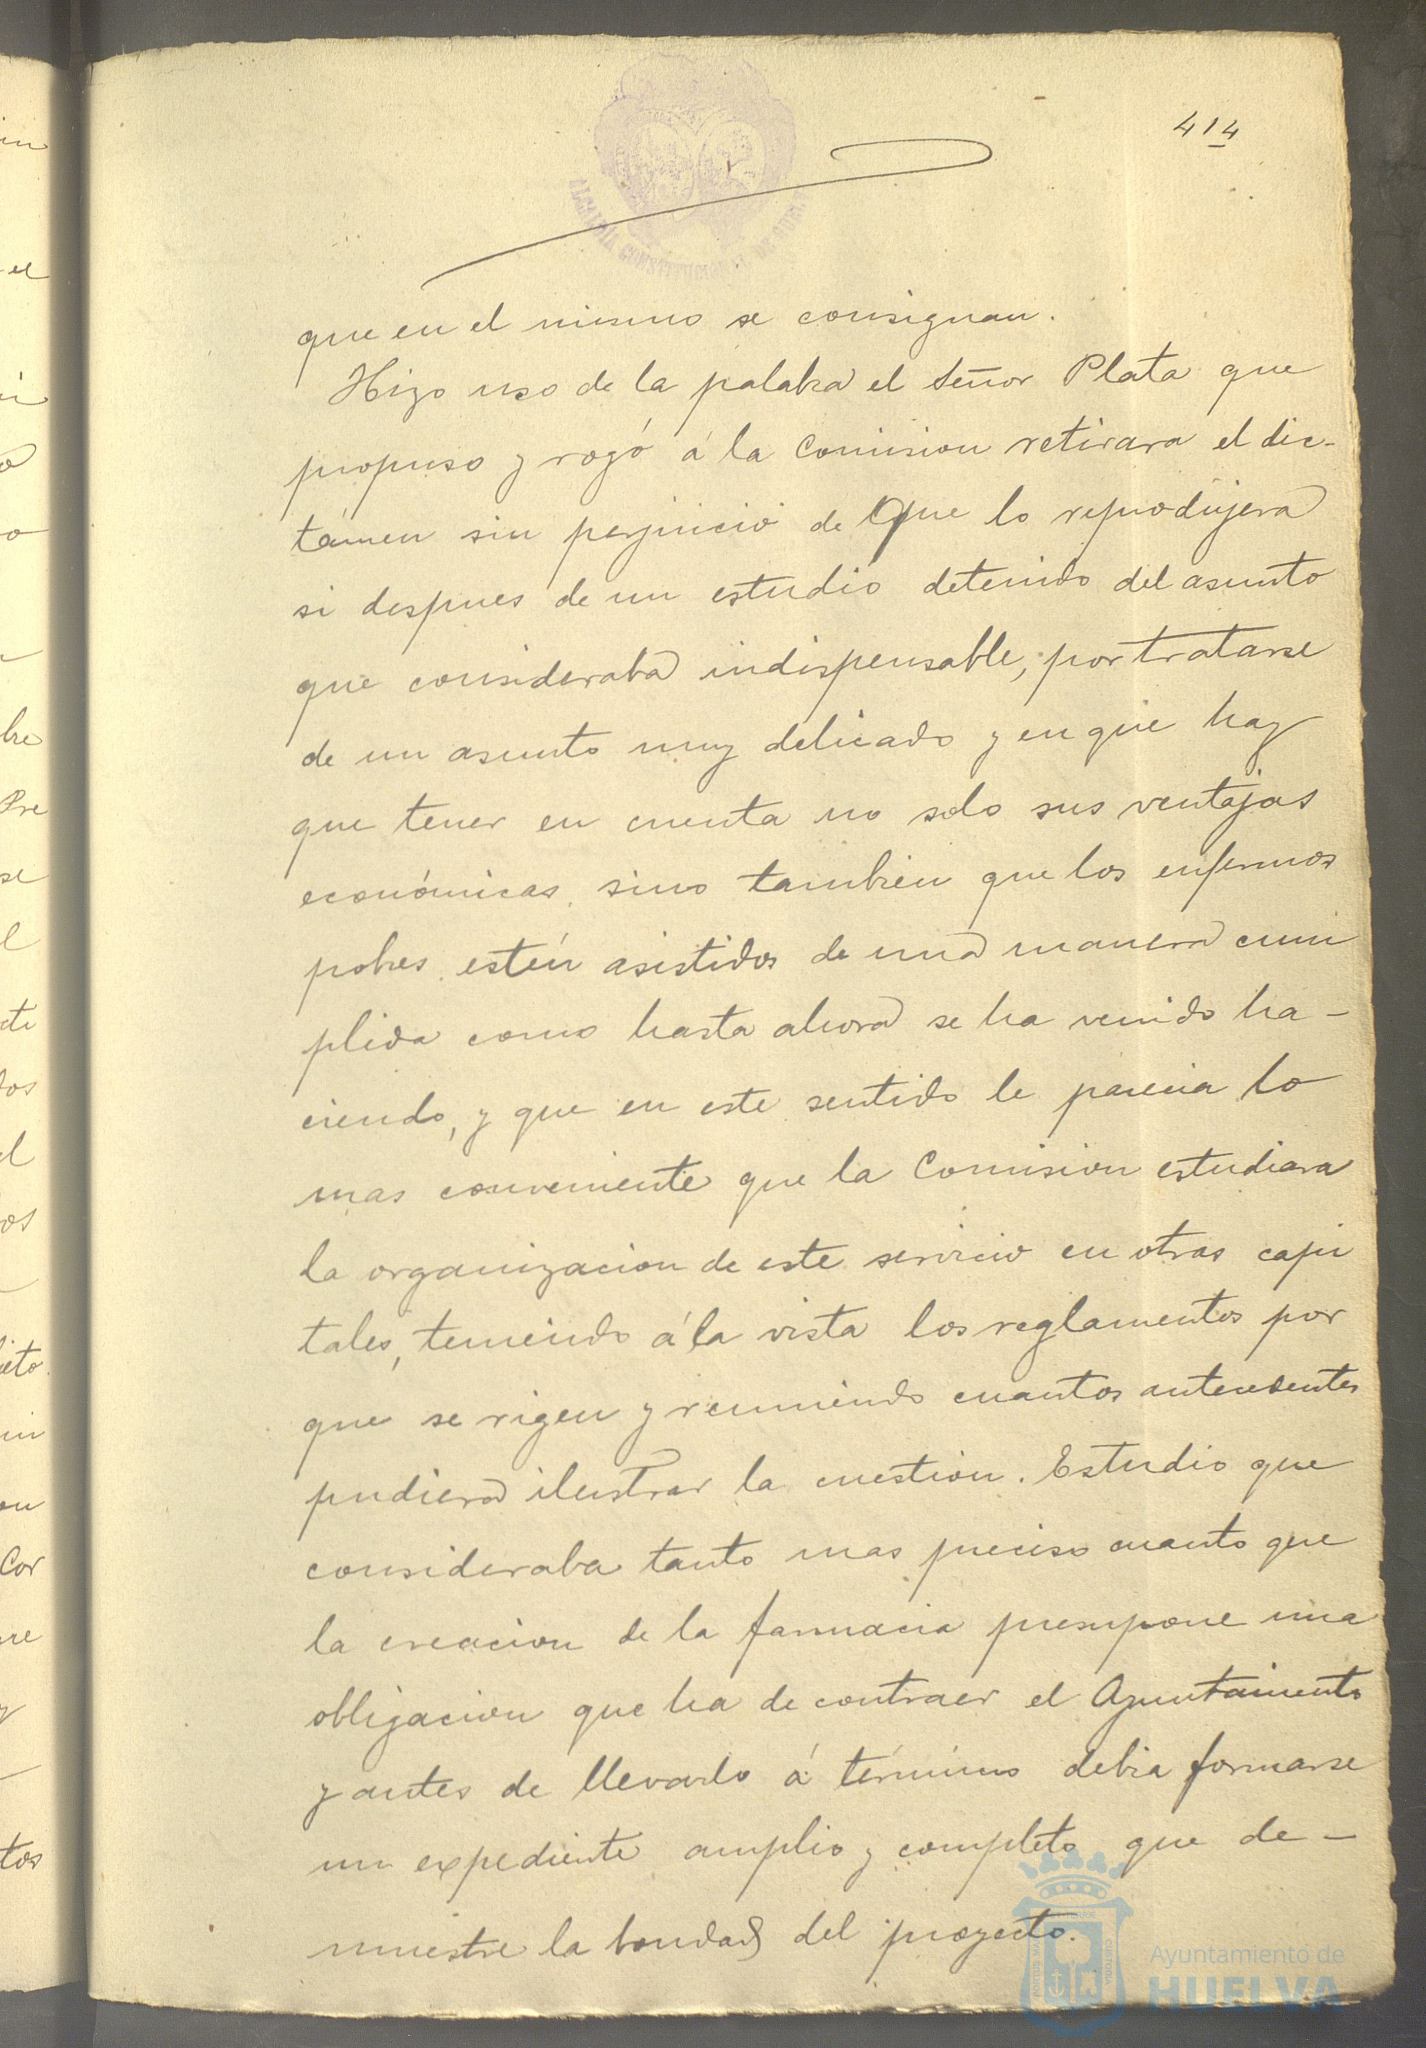 414
ALCALDIA CONSTITUCIONAL DE
que en el mismo se consignan.
Hizo uso de la palabra el Señor Plata que
propuso y rogó á la Comision retirara el dic-
támen sin perjuicio de que lo reprodujera
si despues de un estudio detenido del asunto
que consideraba indispensable, por tratarse
de un asunto muy delicado y en que hay
que tener en cuenta no solo sus ventajas
económicas, sino tambien que los enfermos
pobres estén asistidos de una manera cum
plida como hasta ahora se ha venido ha-
ciendo, y que en este sentido le parecia lo
mas conveniente que la Comision estudiara
la organizacion de este servicio en otras capi
tales, teniendo á la vista los reglamentos por
que se rigen y reuniendo cuantos antecedentes
pudiera ilustrar la cuestion. Estudio que
consideraba tanto mas preciso cuanto que
la creacion de la farmacia presupone una
obligacion que ha de contraer el Ayuntamiento
y antes de llevarlo á término debia formarse
un expediente amplio y completo que de-
muestre la bondad del proyecto.
Ayuntamiento de
HUELVA